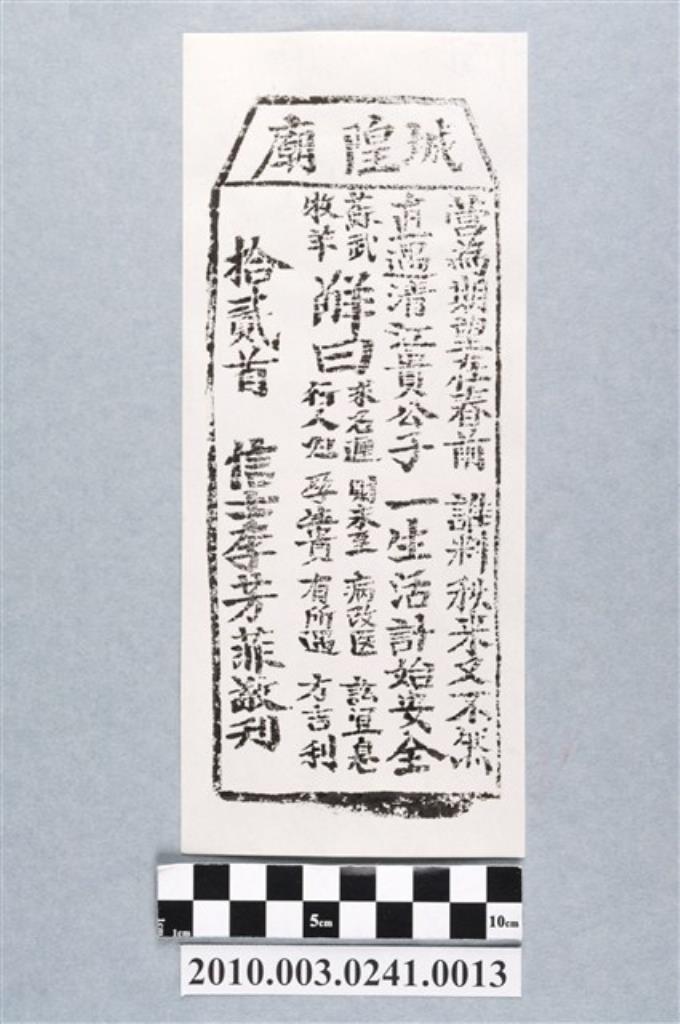 城隍廟
營為期望在春前 誰料秋來又不然
直遇清江貴公子 一生活計始安全
蘇武
牧羊
解曰
求名遲 財未至 病改医 訟宜息
行人 孕 貴 有所遇 方吉利
拾貳首 信士李芳菲敬刊
5cm
10cm
1cm
2010.003.0241.0013